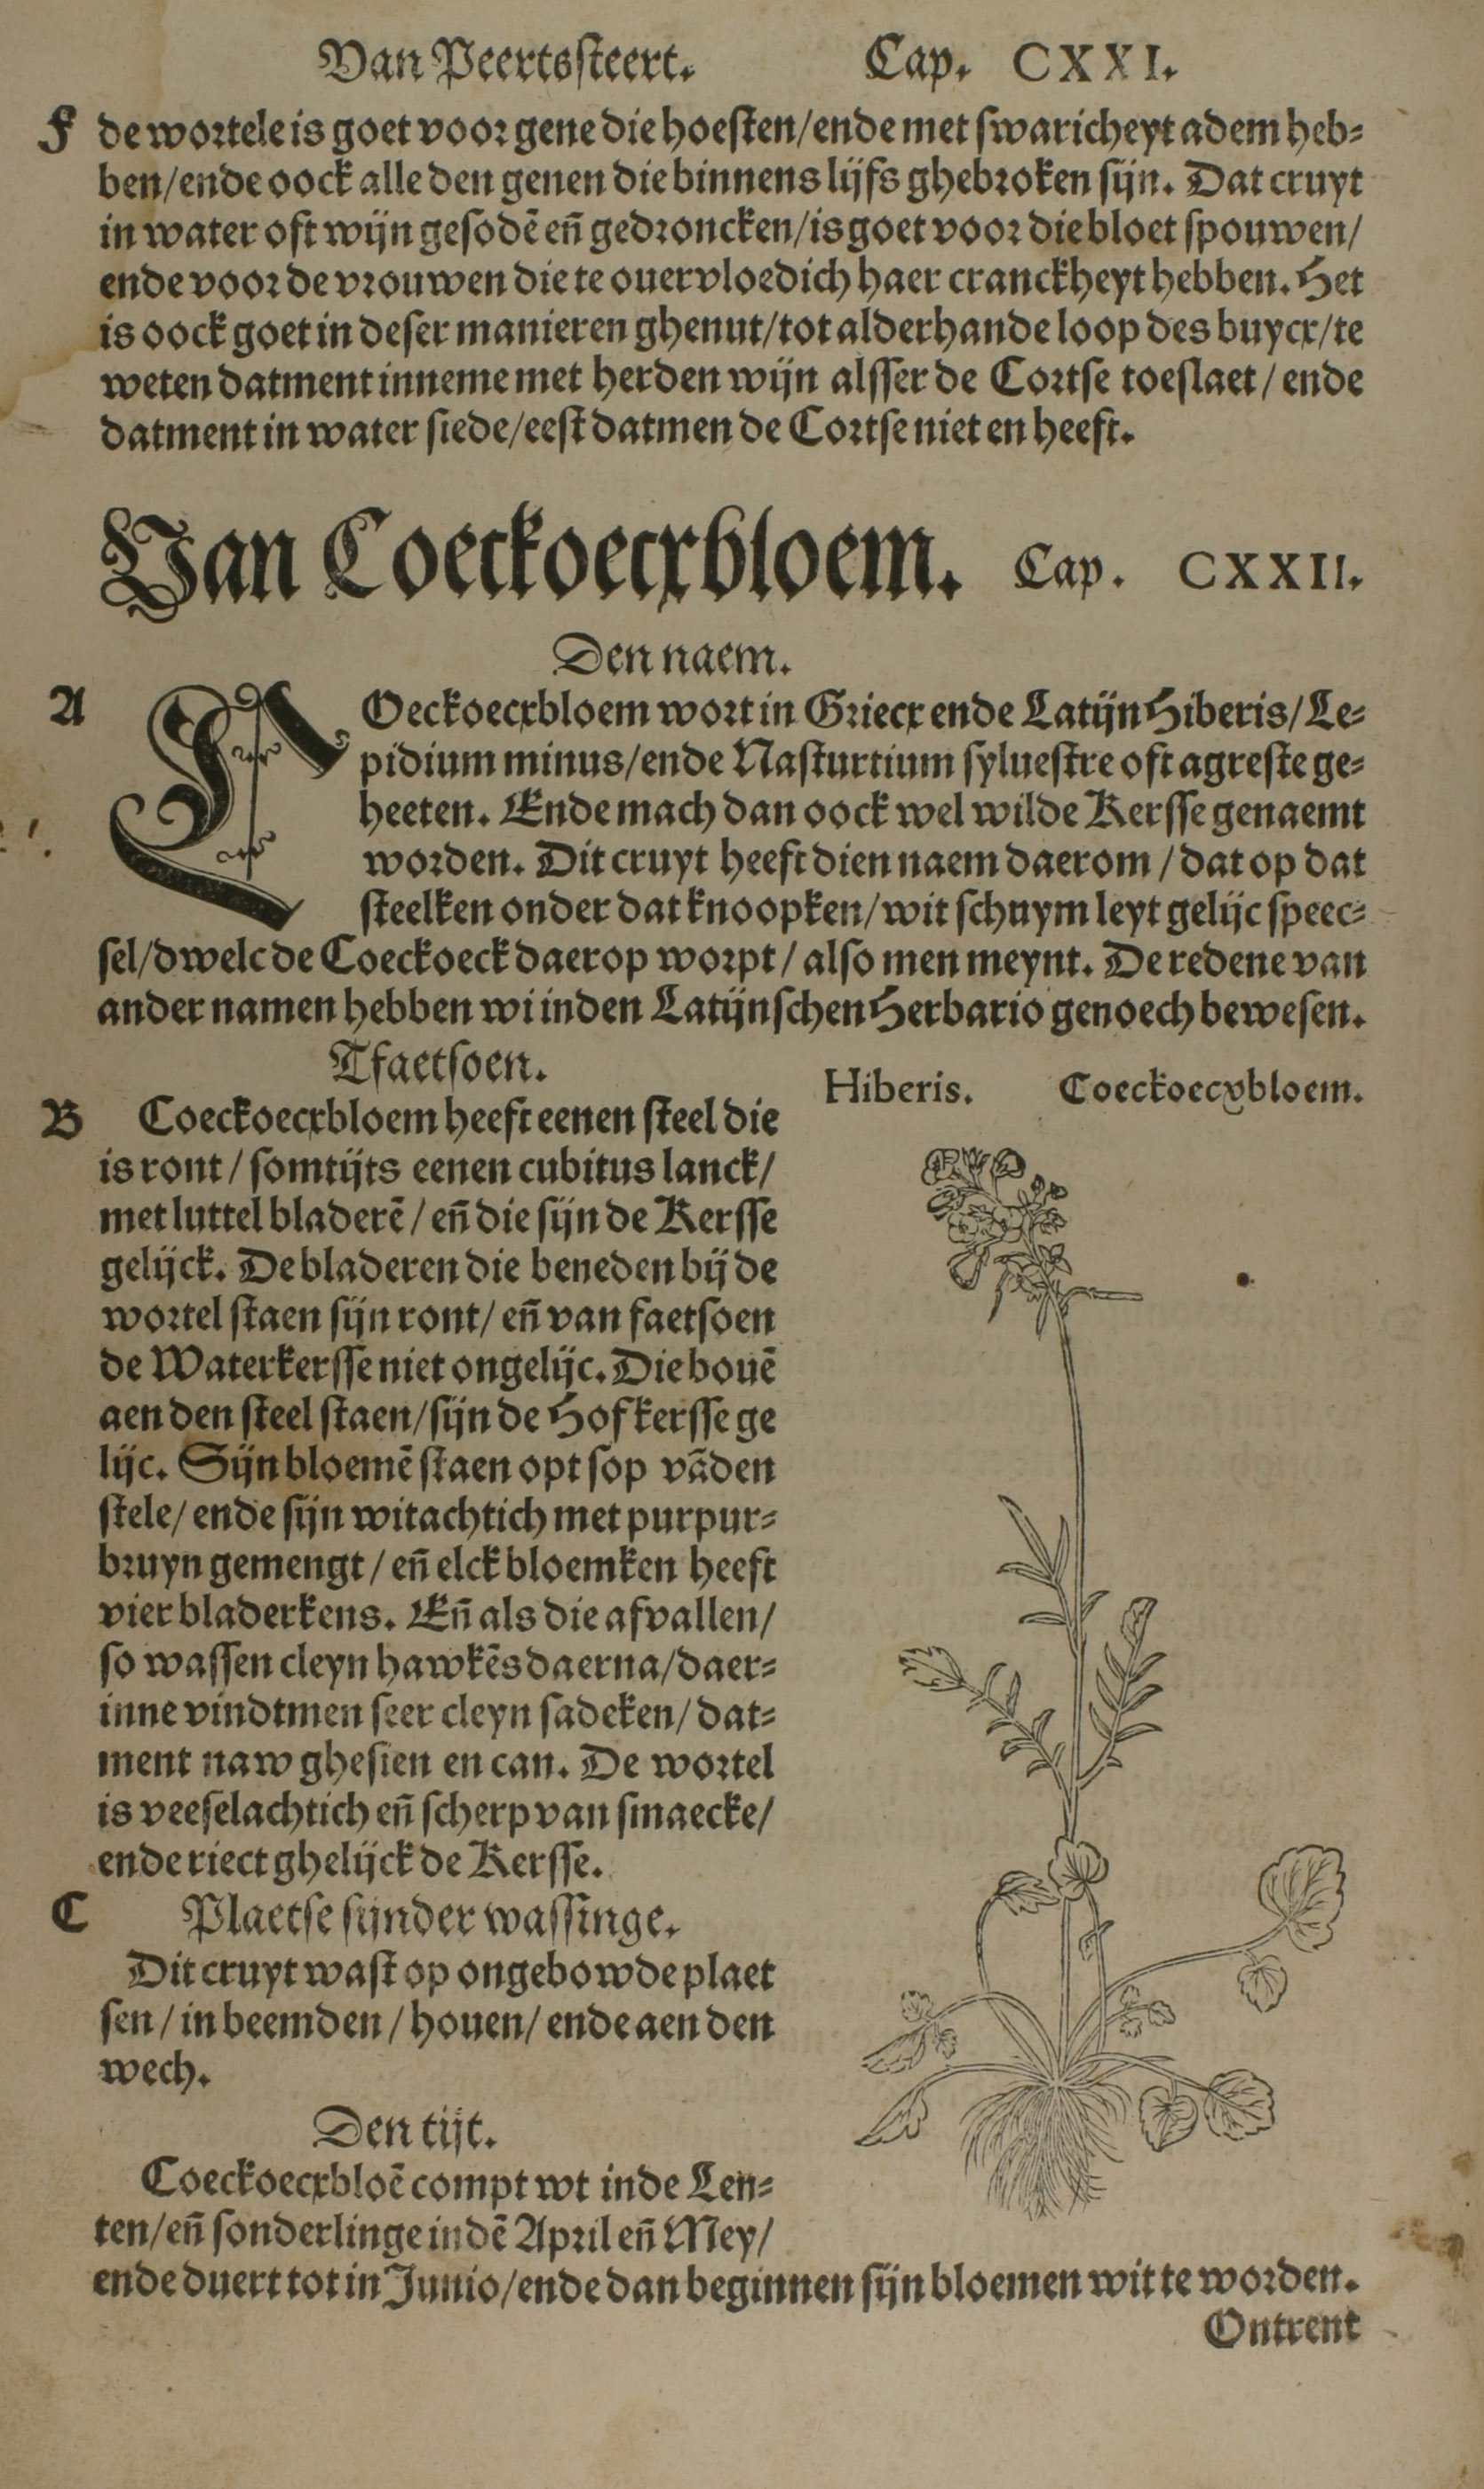 Van Peertssteert. Cap. CXXI.
F de wortele is goet voor gene die hoesten/ende met swaricheyt adem heb-
ben/ende oock alle den genen die binnens lijfs ghebroken sijn. Dat cruyt
in water oft wijn gesodē eñ gedroncken/is goet voor die bloet spouwen/
ende voor de vrouwen die te ouervloedich haer cranckheyt hebben. Het
is oock goet in deser manieren ghenut/tot alderhande loop des buycx/te
weten datment inneme met herden wijn alsser de Cortse toeslaet/ende
datment in water siede/eest datmen de Cortse niet en heeft.
Van Coeckoecxbloem. Cap. CXXII.
Den naem.
A COeckoecxbloem wort in Griecx ende Latijn Hiberis/Le-
pidium minus/ende Nasturtium syluestre oft agreste ge-
heeten. Ende mach dan oock wel wilde Kersse genaemt
worden. Dit cruyt heeft dien naem daerom/dat op dat
steelken onder dat knoopken/wit schuym leyt gelijc speec-
sel/dwelc de Coeckoeck daerop worpt/also men meynt. De redene van
ander namen hebben wi inden Latijnschen Herbario genoech bewesen.
Tfaetsoen.
Hiberis. Coeckoecxbloem.
B Coeckoecxbloem heeft eenen steel die
is ront/somtijts eenen cubitus lanck/
met luttel bladerē/eñ die sijn de Kersse
gelijck. De bladeren die beneden bij de
wortel staen sijn ront/eñ van faetsoen
de Waterkersse niet ongelijc. Die bouē
aen den steel staen/sijn de Hofkersse ge
lijc. Sijn bloemē staen opt sop vāden
stele/ende sijn witachtich met purpur-
bruyn gemengt/eñ elck bloemken heeft
vier bladerkens. Eñ als die afvallen/
so wassen cleyn hawkēs daerna/daer-
inne vindtmen seer cleyn sadeken/dat-
ment naw ghesien en can. De wortel
is veeselachtich eñ scherp van smaecke/
ende riect ghelijck de Kersse.
C Plaetse sijnder wassinge.
Dit cruyt wast op ongebowde plaet
sen/in beemden/houen/ende aen den
wech.
Den tijt.
Coeckoecxbloē compt wt inde Len-
ten/eñ sonderlinge in dē April eñ Mey/
ende duert tot in Junio/ende dan beginnen sijn bloemen wit te worden.
Ontrent